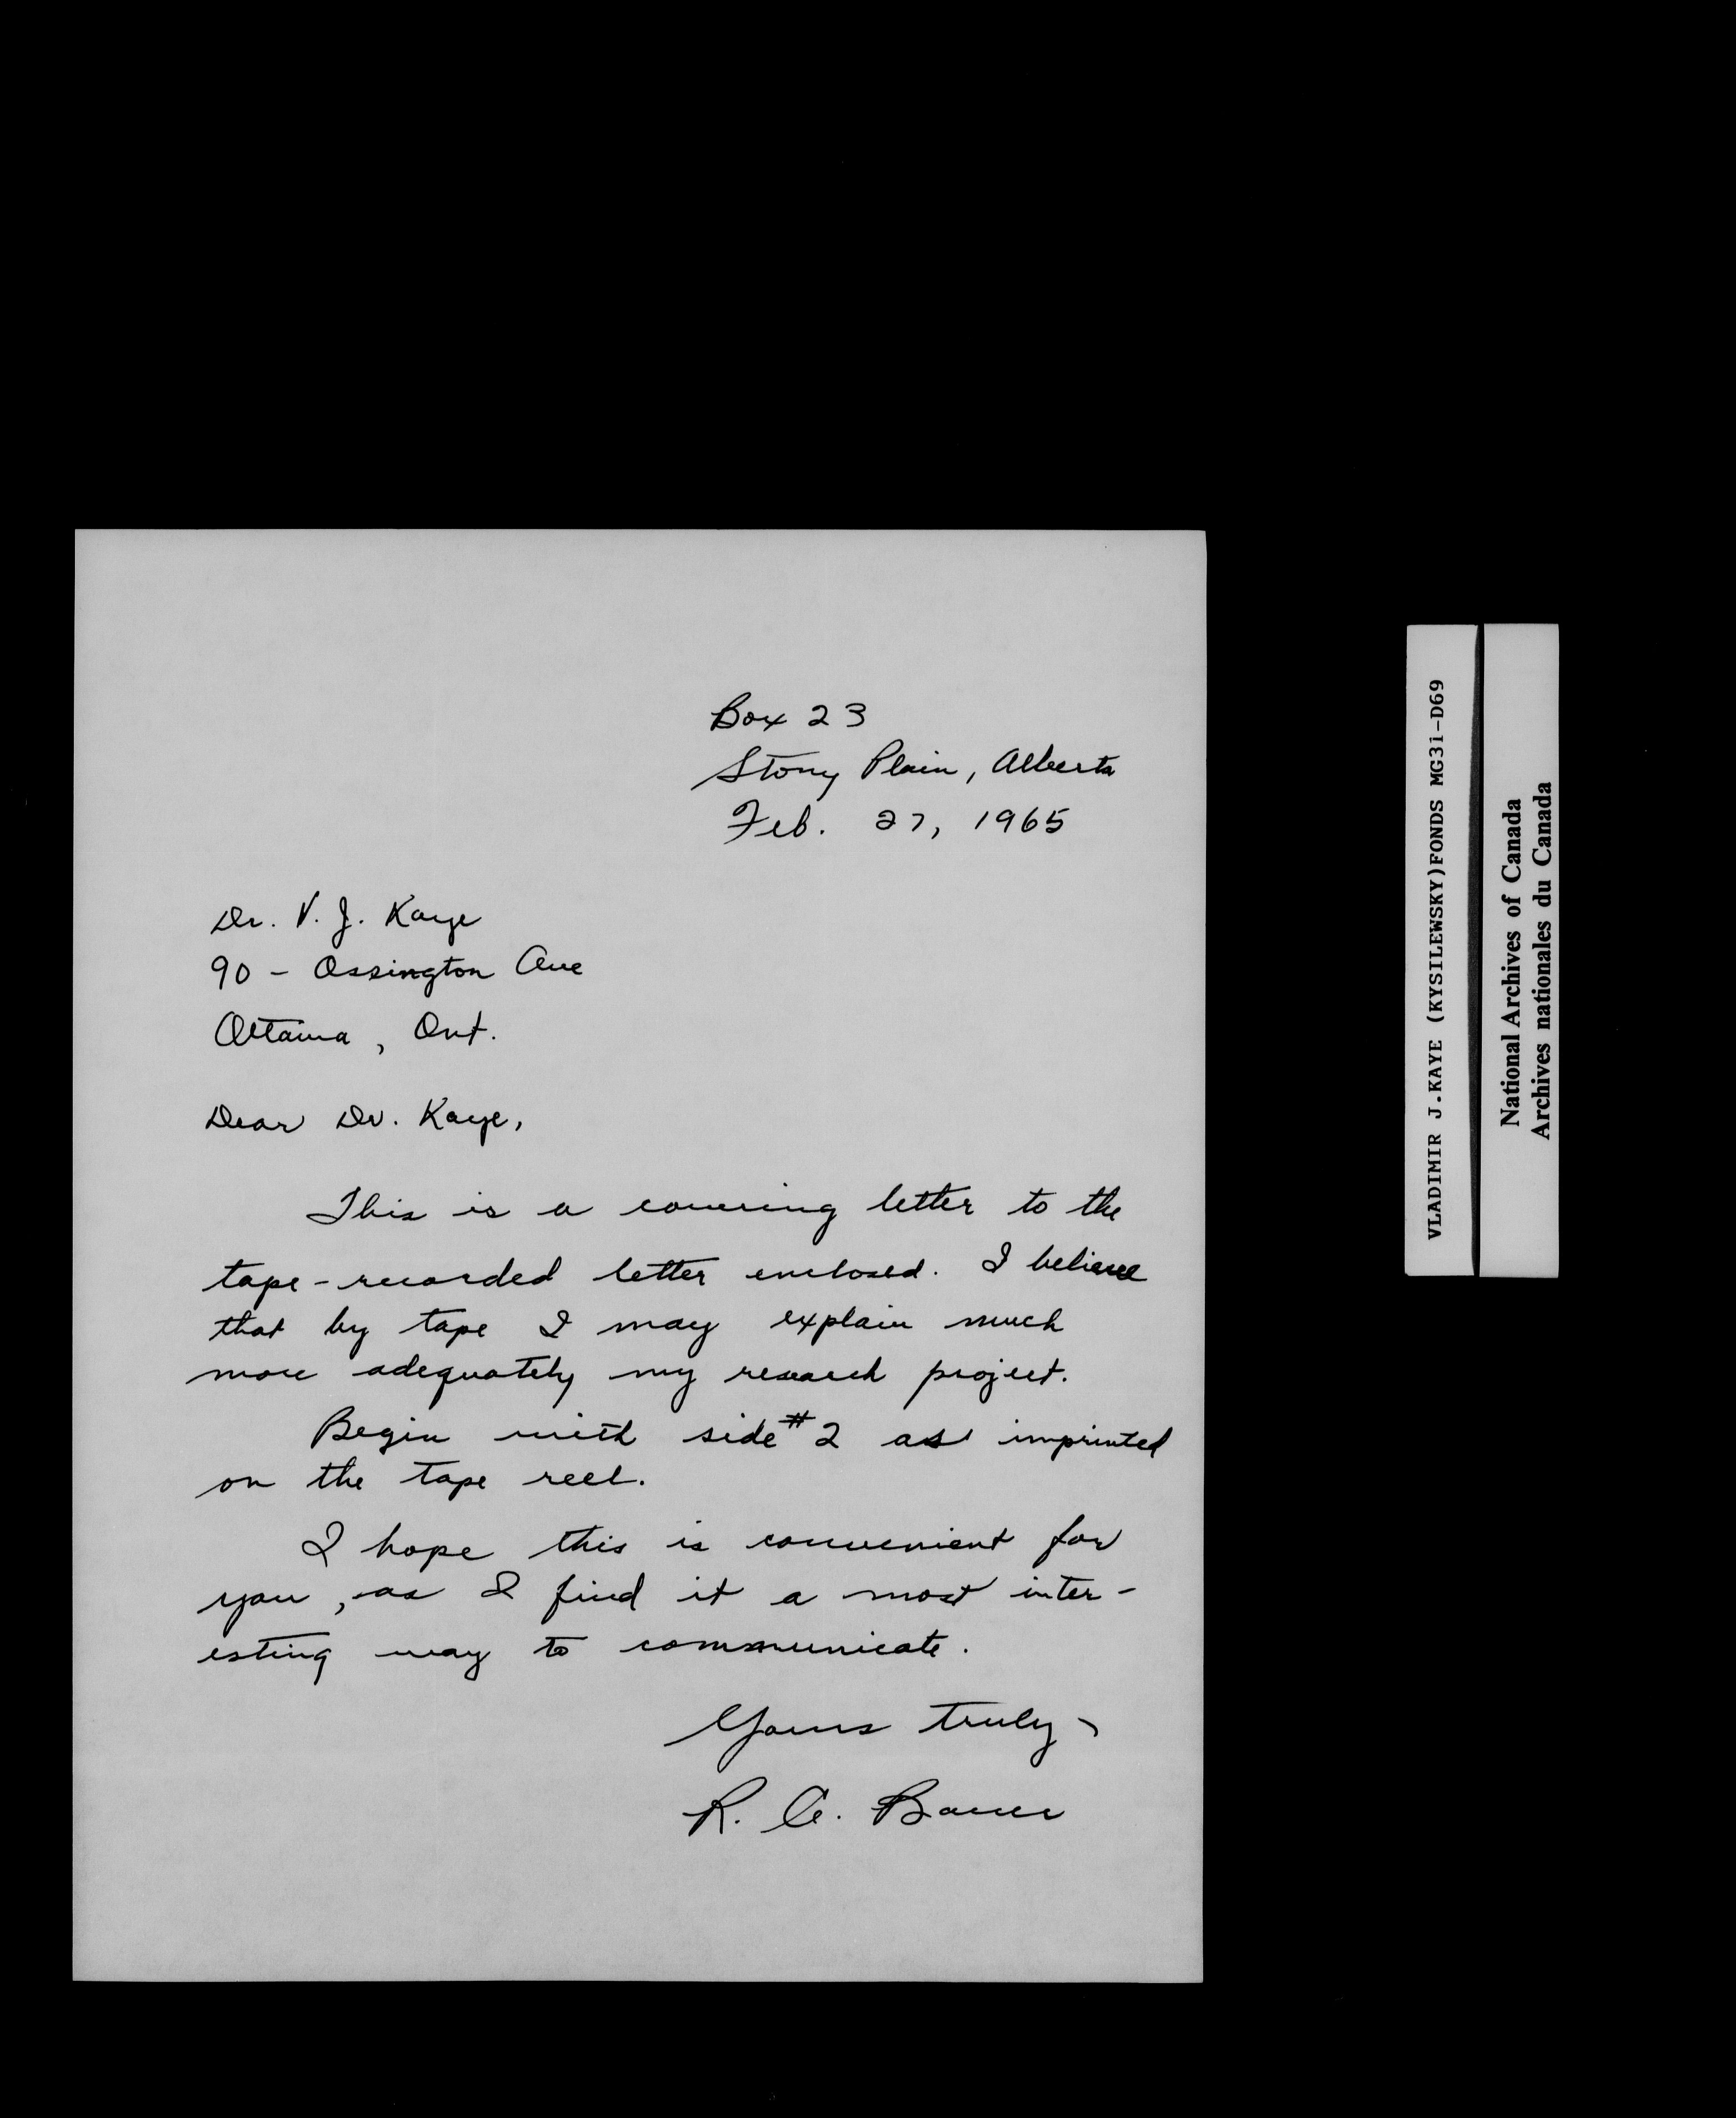 Box 23
Stony Plain, Alberta
Feb. 27, 1965
Dr. V. J. Kaye
90 - Ossington Ave
Ottawa, Ont.
Dear Dr. Kaye,
This is a covering letter to the
tape-recorded letter enclosed. I believe
that by tape I may explain much
more adequately my research project.
Begin with side #2 as imprinted
on the tape reel.
I hope this is convenient for
you, as I find it a most inter-
esting way to communicate.
Yours truly,
R. A. Bauer
VLADIMIR J.KAYE (KYSILEWSKY)FONDS MG31-D69
National Archives of Canada
Archives nationales du Canada